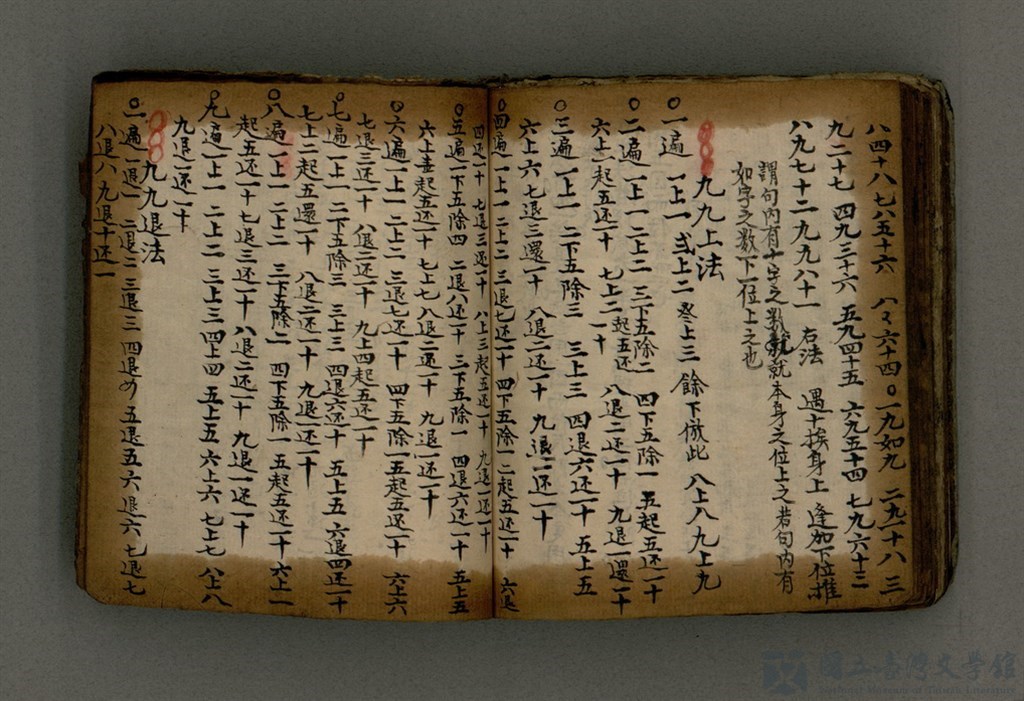 八四十八 七八五十六 八八六十四〇一九如九 二九一十八 三
九二十七 四九三十六 五九四十五 六九五十四 七九六十三
八九七十二 九九八十一 右法 遇十挨身上 逢加下位推
謂句內有十字之數就就本身之位上之若句內有
如字之數下一位上之也
九九上法
〇一遍 一上一 弍上二 叁上三 餘下倣此 八上八 九上九
〇二遍 一上一 二上二 三下五除二 四下五除一 五起五还一十
六上一起五还一十 七上二起五还一十 八退二还一十 九退一還一十
〇三遍 一上一 二下五除三 三上三 四退六还一十 五上五
六上六 七退三還一十 八退二还一十 九退一还一十
〇四遍 一上一 二上二 三退七还一十 四下五除一 二起五还一十 六退
四还一十 七退三还一十 八上三起五还一十 九退一还一十
〇五遍 一下五除四 二退八还一十 三下五除一 四退六还一十 五上五
六上壹起五还一十 七上七 八退二還一十 九退一还一十
〇六遍 一上一 二上二 三退七还一十 四下五除一 五起五还一十 六上六
七退三还一十 八退二还一十 九上四起五还一十
〇七遍 一上一 二下五除三 三上三 四退六还一十 五上五 六退四还一十
七上二起五還一十 八退二还一十 九退一还一十
〇八遍 一上一 二上二 三下五除二 四下五除一 五起五还一十 六上一
起五还一十 七退三还一十 八退二还一十 九退一还一十
〇九遍 一上一 二上二 三上三 四上四 五上五 六上六 七上七 八上八
九退一还一十
九九退法
〇一遍 一退一 二退二 三退三 四退四 五退五 六退六 七退七
八退八 九退十还一
國立臺灣文學館
National Museum of Taiwan Literature